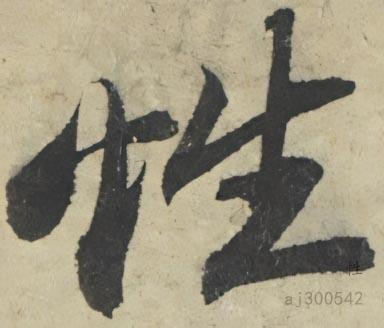 性
性
aj300542